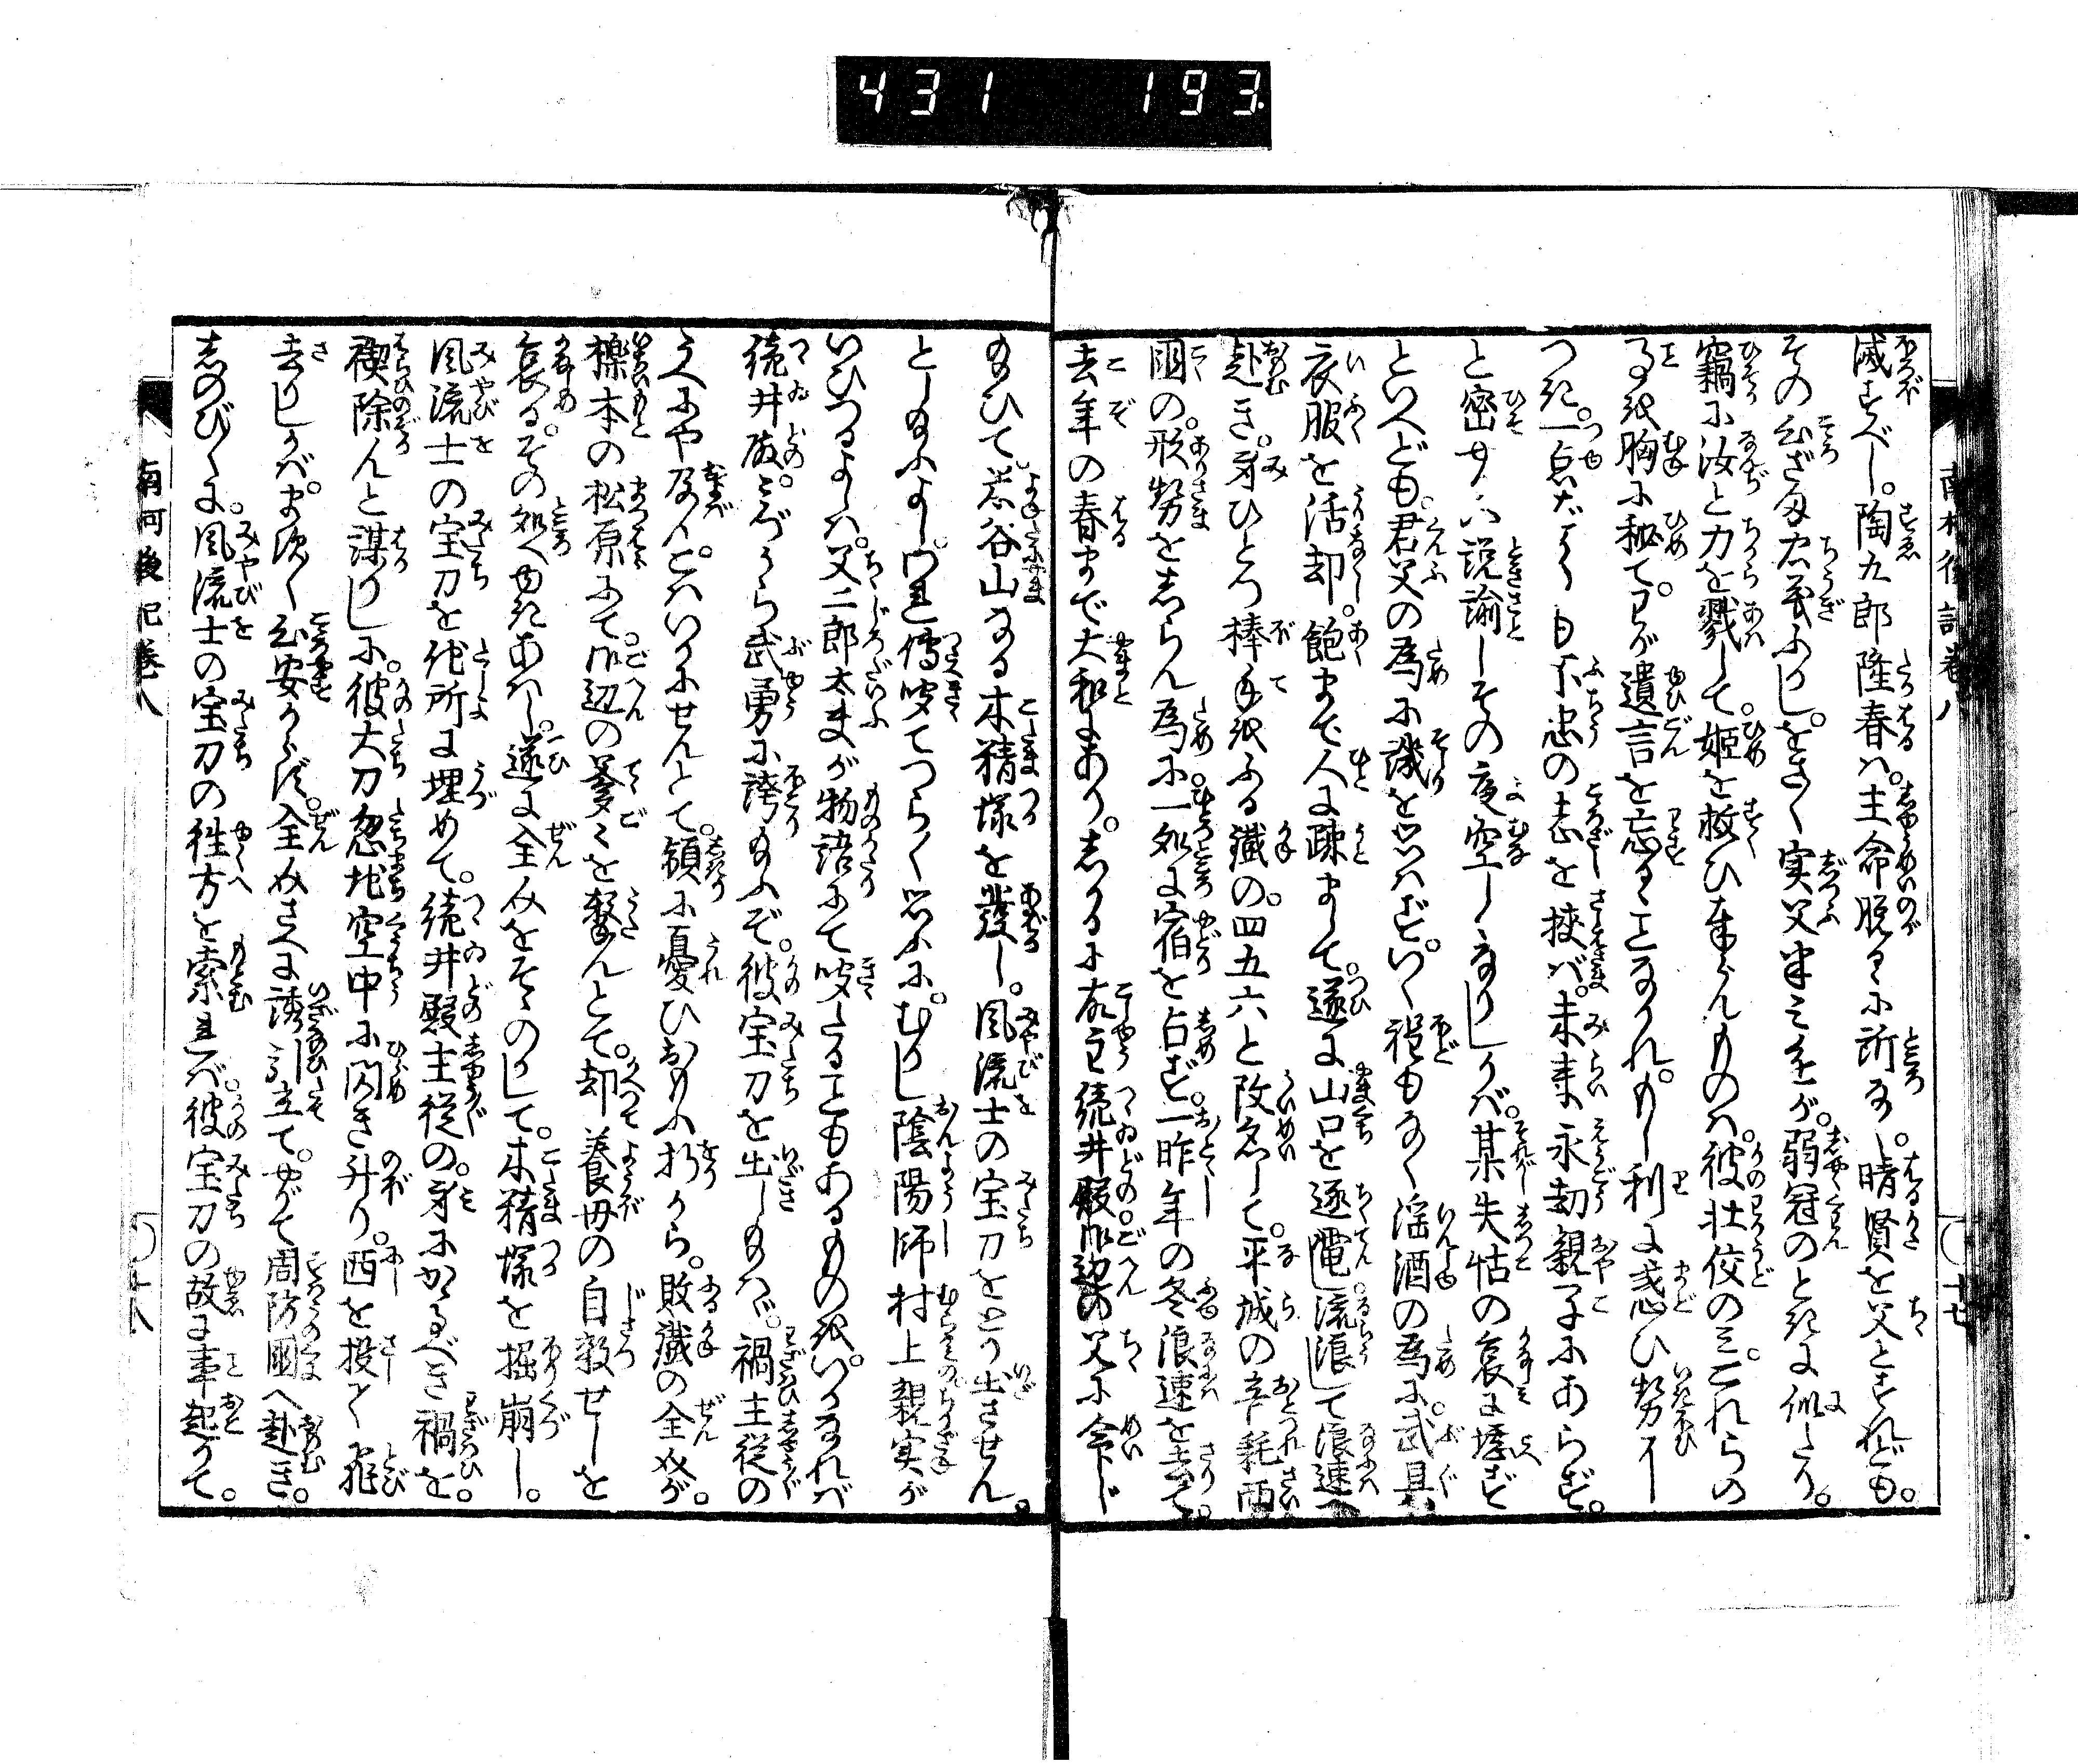 431 193
南柯後記巻八
滅すべし。陶五郎隆春は。主命脱るゝに所なし。晴賢を父とすれども。
その心ざま忠義ふかし。をさ〳〵実父
弱冠のときに似たり。
竊に汝と力を戮して。姫を救ひまゐらんものは。彼壮佼のみ。これらの
よしを胸に秘て。わが遺言を忘るゝことなかれ。もし利に惑ひ勢ひに
つき。一点だも不忠の志を挟ば。未来永劫親子にあらず。
と密やかに説諭し。その夜空しくなりしかば。某失怙の哀に堪ず
といへども。君父の為に譏を思はず。いく程もなく淫酒の為に。武具
衣服を活却。飽まで人に疎まして。遂に山口を逐電し流浪して浪速へ
赴き。身ひとつ棒手ふる殲の。四五六と改名して。平城の辛耗両
国の。形勢をしらん為に。一処に宿を占ず。一昨年の冬浪速を去て。
去年の春まで大和にあり。しかるに故主続井殿。御辺の父に命じ
給ひて。荒谷山なる木精塚を発し。風流士の宝刀をとり出させん
とし給ふよし。われ傳聞てつら〳〵思ふに。むかし陰陽師村上親実が
いひつるよしは。父二郎太夫が物語にて聞たることもあるものを。いかなれば
続井殿。みづから武勇に誇給ふぞ。彼宝刀を出し給はゞ。禍主従の
うへにや及ん。とはいかにせんとて。頻に憂ひおもふ折から。敗殲の全八が。
櫟本の松原にて。御辺の爹々を撃んとて。却養母の自殺せしを
哀る。その処へゆきあはし。遂に全八をそゝのかして。木精塚を掘崩し。
風流士の宝刀を他所に埋めて。続井殿主従の。身にかゝるべき禍を。
禊除んと謀りしに。彼大刀忽地空中に閃き升り。西を投て飛
去りしかば。ます〳〵心安からず。全八さへに誘引立て。やがて周防国へ赴き。
しのび〳〵に。風流士の宝刀の往方を索れば。彼宝刀の故に事起りて。
南柯後記巻八